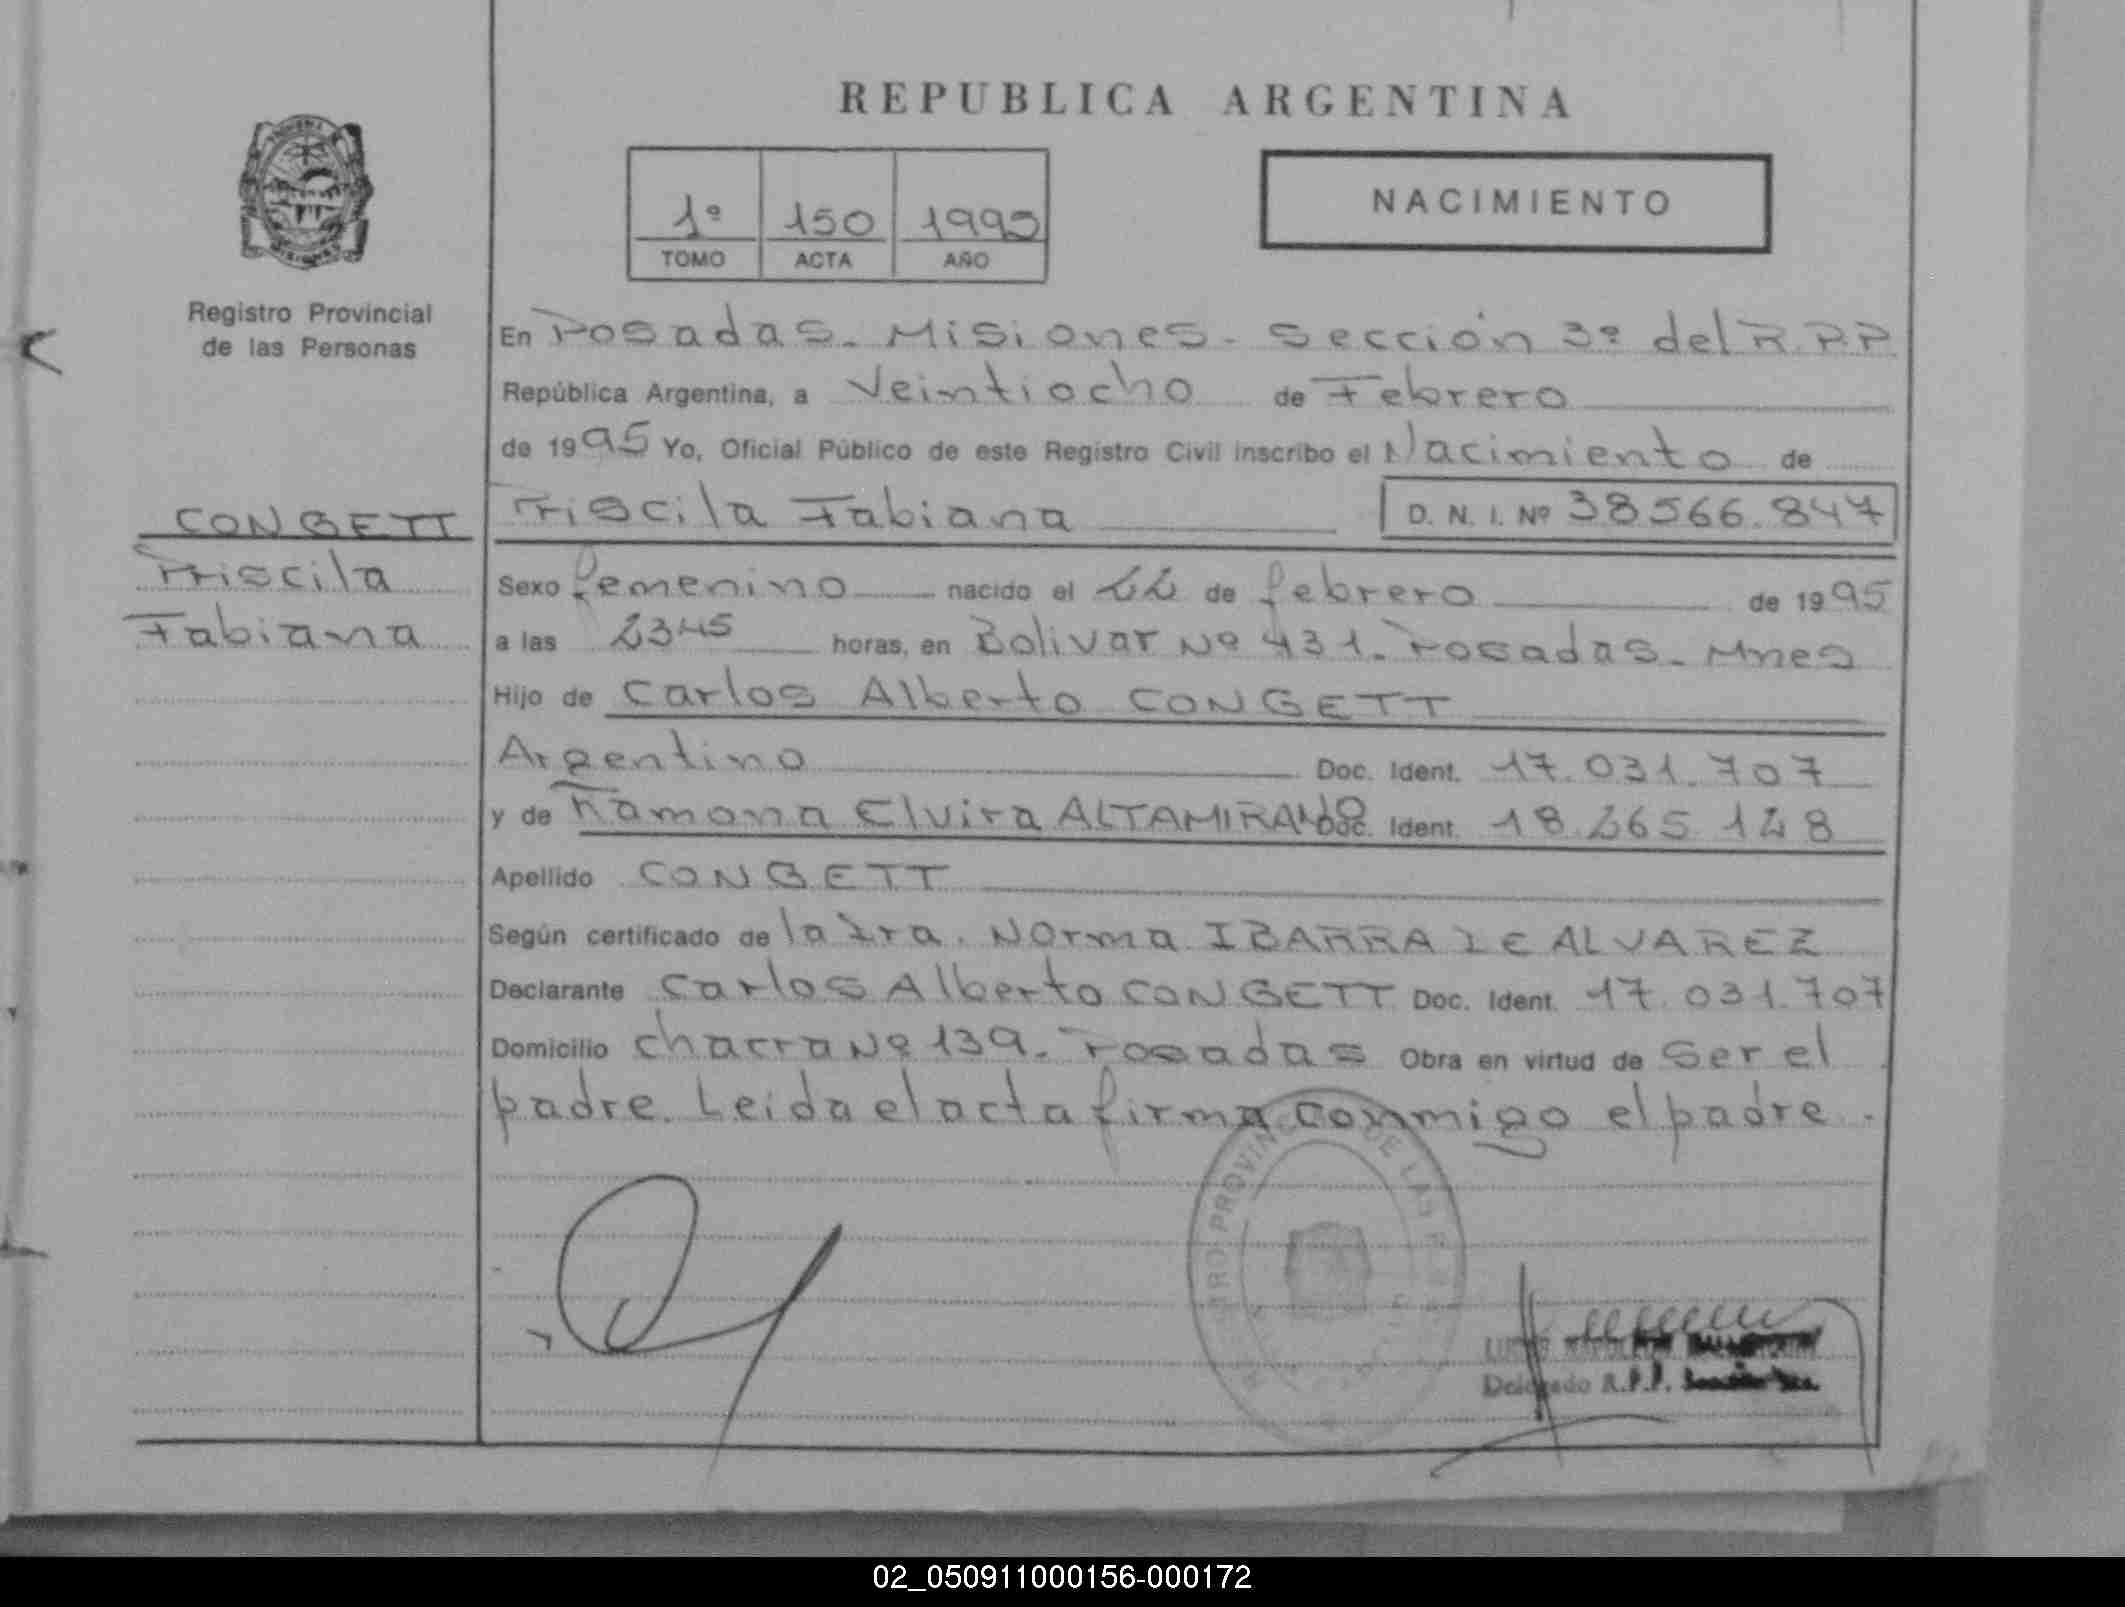 REPUBLICA ARGENTINA
NACIMIENTO
1º 150 1995
TOMO ACTA AÑO
Registro Provincial
de las Personas
CONGETT
Priscila
Fabiana
En Posadas. Misiones. Sección 3º del R.P.P
República Argentina, a Veintiocho de Febrero
de 1995 Yo, Oficial Público de este Registro Civil inscribo el Nacimiento de
Priscila Fabiana D. N. I. Nº 38566.847
Sexo femenino nacido el 22 de febrero de 1995
a las 2345 horas, en Bolivar Nº 431. Posadas. Mnes
Hijo de Carlos Alberto CONGETT
Argentino Doc. Ident. 17.031.707
y de Ramona Elvira ALTAMIRANO Doc. Ident. 18.265.128
Apellido CONGETT
Según certificado de la Dra. Norma IBARRA DE ALVAREZ
Declarante Carlos Alberto CONGETT Doc. Ident. 17.031.707
Domicilio chacra Nº 139. Posadas Obra en virtud de ser el
padre. Leida el acta firma conmigo el padre.
PROVIN DE LAS
Delegado R.P.P.
02_050911000156-000172